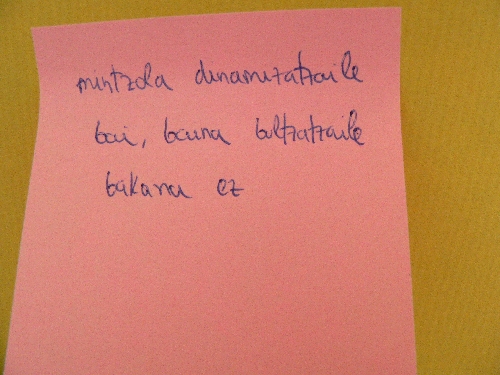 mintzola dinamizatzaile
bai, baina bultzatzaile
bakarra ez